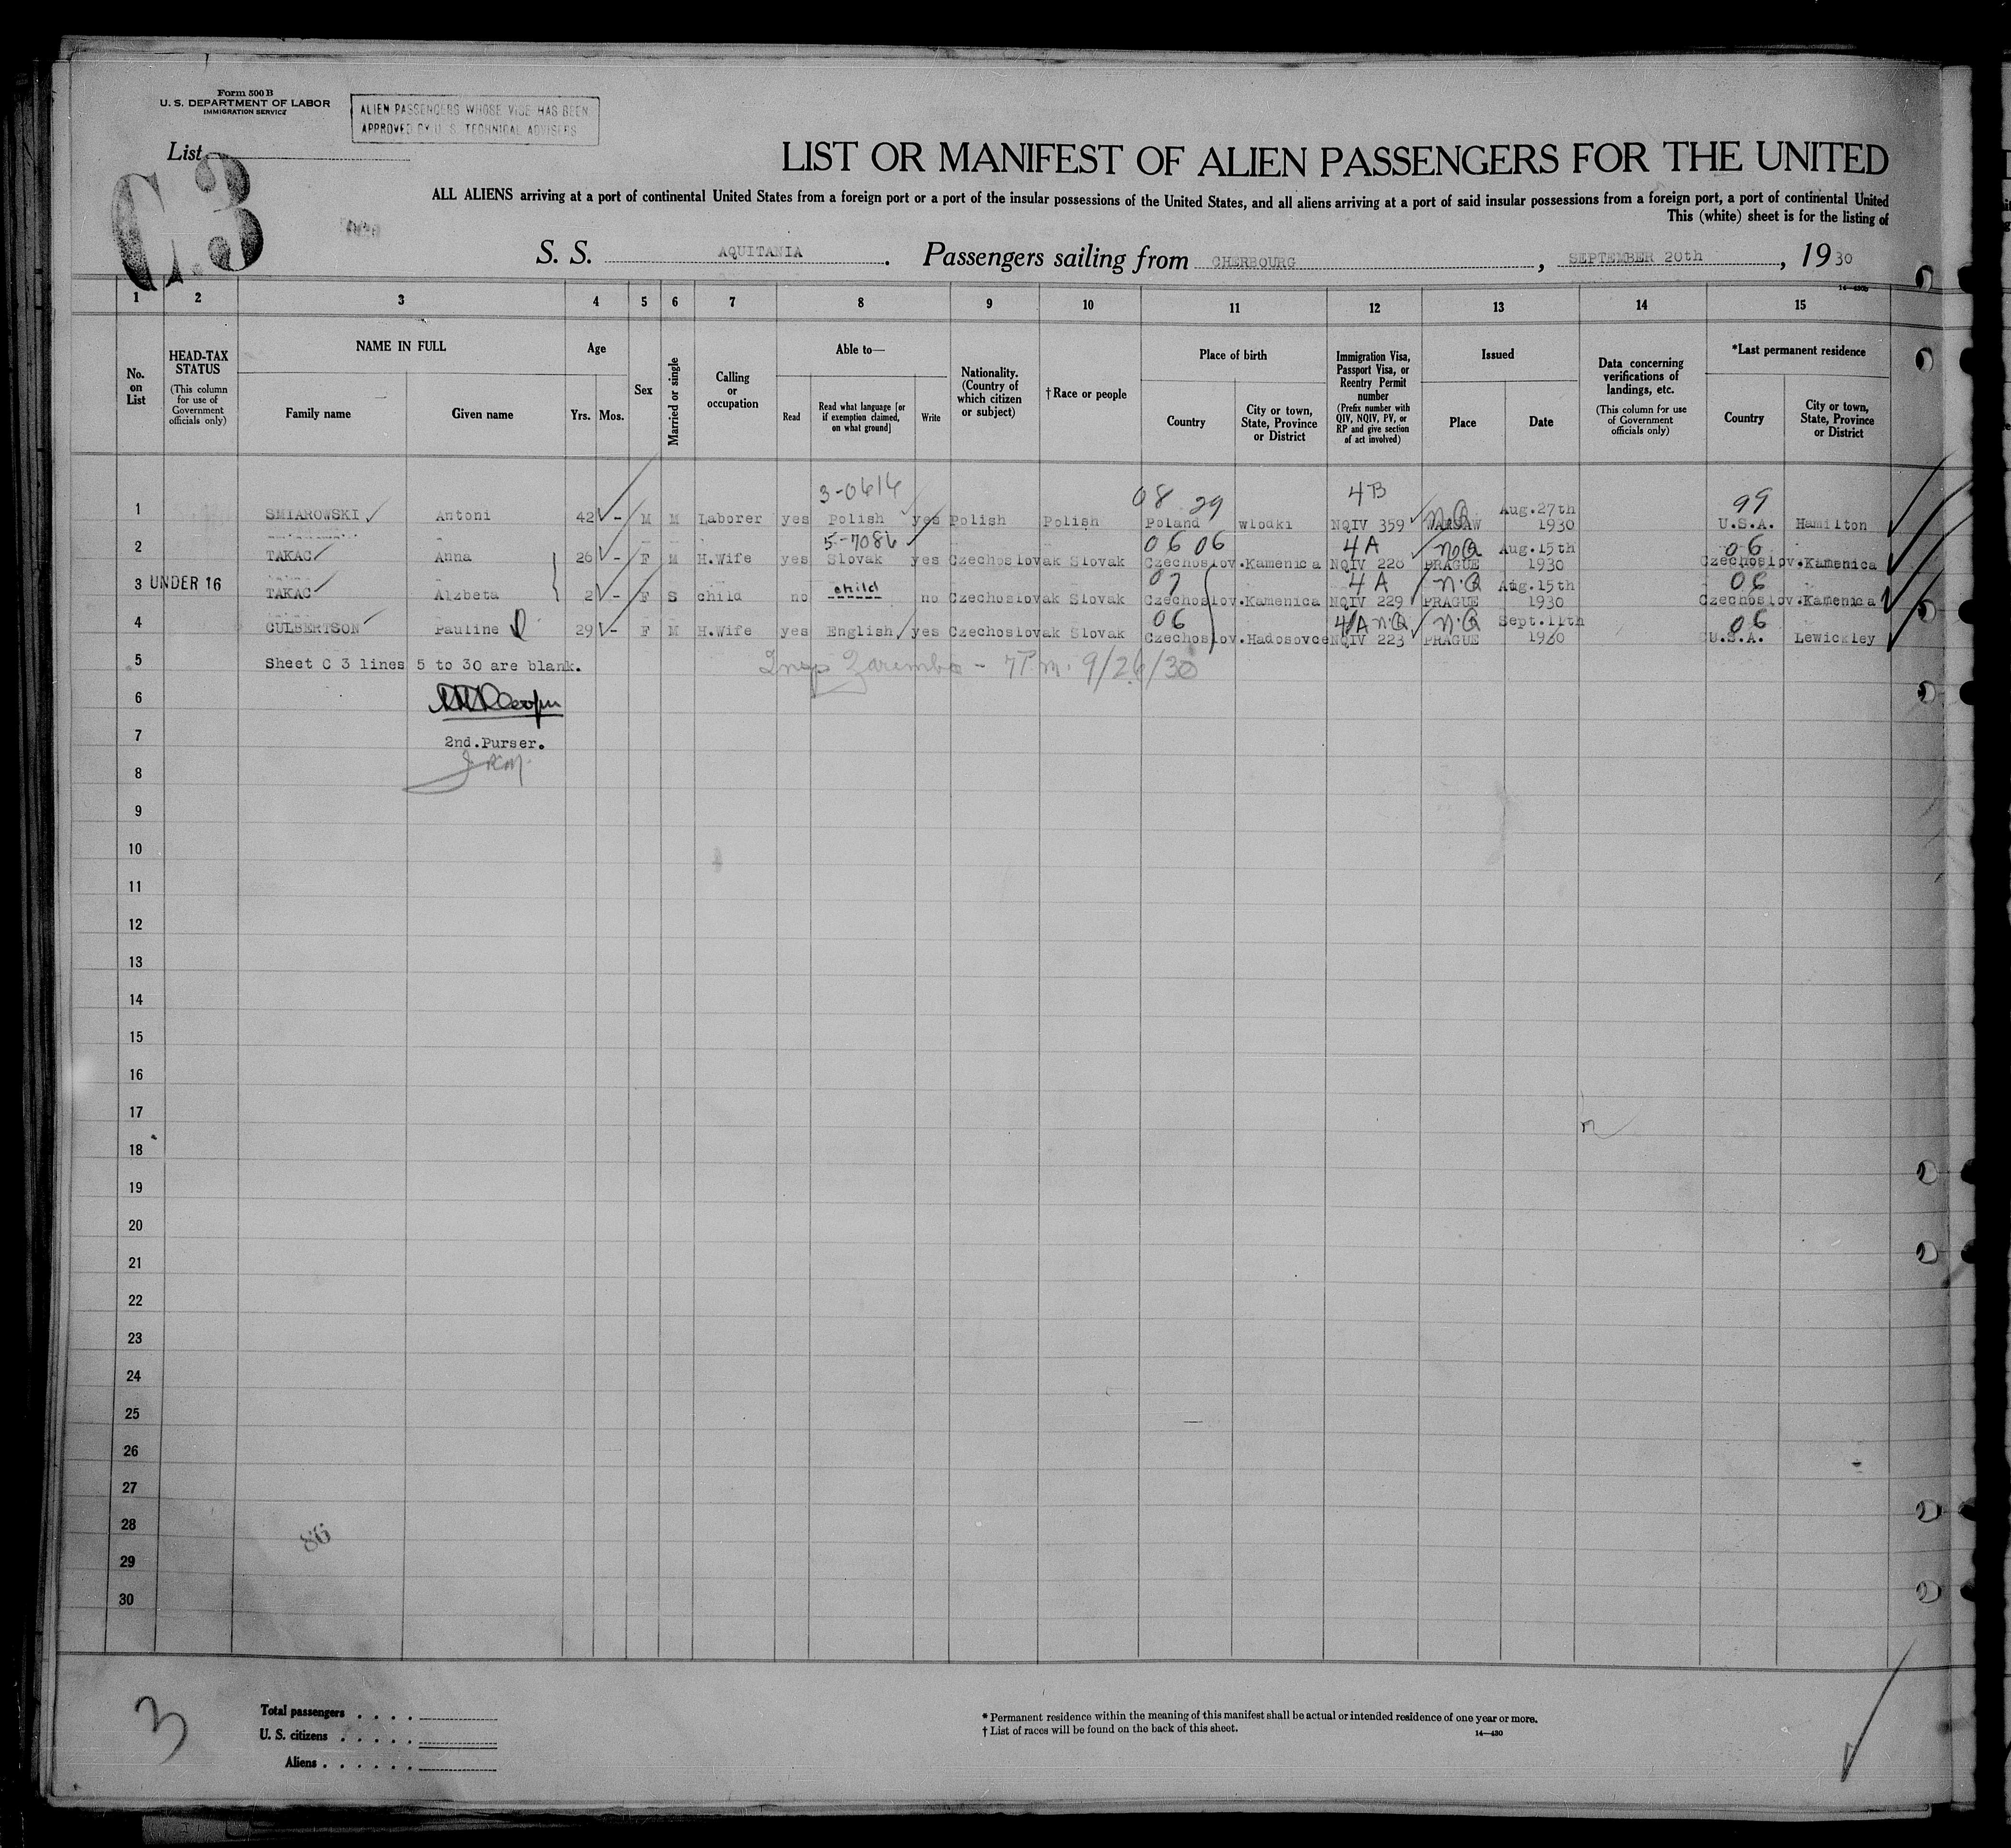 Form 500 B
U. S. DEPARTMENT OF LABOR
IMMIGRATION SERVICE
ALIEN PASSENGERS WHOSE VISE HAS BEEN
APPROVED BY U. S. TECHNICAL ADVISERS
List
C.3
LIST OR MANIFEST OF ALIEN PASSENGERS FOR THE UNITED
ALL ALIENS arriving at a port of continental United States from a foreign port or a port of the insular possessions of the United States, and all aliens arriving at a port of said insular possessions from a foreign port, a port of continental United
This (white) sheet is for the listing of
S. S. AQUITANIA. Passengers sailing from CHERBOURG, SEPTEMBER 20th, 1930
1 2 3 4 5 6 7 8 9 10 11 12 13 14 15
No. on List
HEAD-TAX STATUS
(This column for use of Government officials only)
NAME IN FULL
Family name
Given name
Age
Yrs. Mos.
Sex
Married or single
Calling or occupation
Able to—
Read
Read what language [or if exemption claimed, on what ground]
Write
Nationality. (Country of which citizen or subject)
† Race or people
Place of birth
Country
City or town, State, Province or District
Immigration Visa, Passport Visa, or Reentry Permit number
(Prefix number with QIV, NQIV, PV, or RP and give section of act involved)
Issued
Place
Date
Data concerning verifications of landings, etc.
(This column for use of Government officials only)
*Last permanent residence
Country
City or town, State, Province or District
3-0616 08 29 4B 99
1 SMIAROWSKI Antoni 42 - M M Laborer yes Polish yes Polish Polish Poland wlodki NQIV 359 WARSAW Aug.27th 1930 U.S.A. Hamilton
5-7086 06 06 4A NQ 06
2 TAKAC Anna 26 - F M H.Wife yes Slovak yes Czechoslovak Slovak Czechoslov.Kamenica NQIV 228 PRAGUE Aug.15th 1930 Czechoslov.Kamenica
07 4A N.Q 06
3 UNDER 16 TAKAC Alzbeta 2 - F S child no child no Czechoslovak Slovak Czechoslov.Kamenica NQIV 229 PRAGUE Aug.15th 1930 Czechoslov.Kamenica
06 4A N.Q N.Q 06
4 CULBERTSON Pauline 29 - F M H.Wife yes English yes Czechoslovak Slovak Czechoslov.Hadosovce NQIV 223 PRAGUE Sept.11th 1930 U.S.A. Lewickley
5 Sheet C 3 lines 5 to 30 are blank. Insp Zaremba - 7P.M. 9/26/30
6
7 2nd.Purser.
8
9
10
11
12
13
14
15
16
17
18
19
20
21
22
23
24
25
26
27
28
86
29
30
3
Total passengers
U. S. citizens
Aliens
* Permanent residence within the meaning of this manifest shall be actual or intended residence of one year or more.
† List of races will be found on the back of this sheet. 14—430